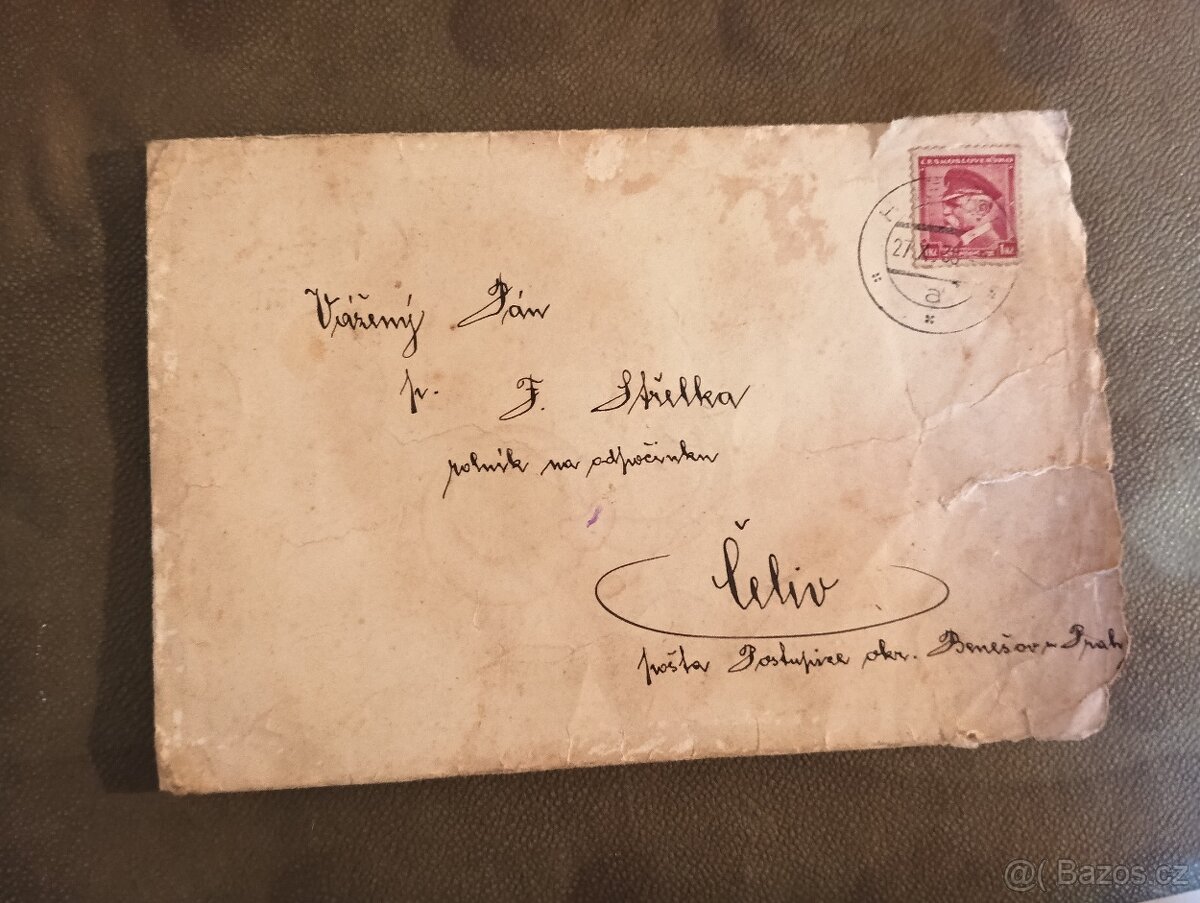 ČESKOSLOVENSKO
1Kč 1Kč
a
Vážený Pán
p. F. Střelka
rolník na odpočinku
Čeliv
pošta Postupice okr. Benešov u Prah
@( Bazos.cz